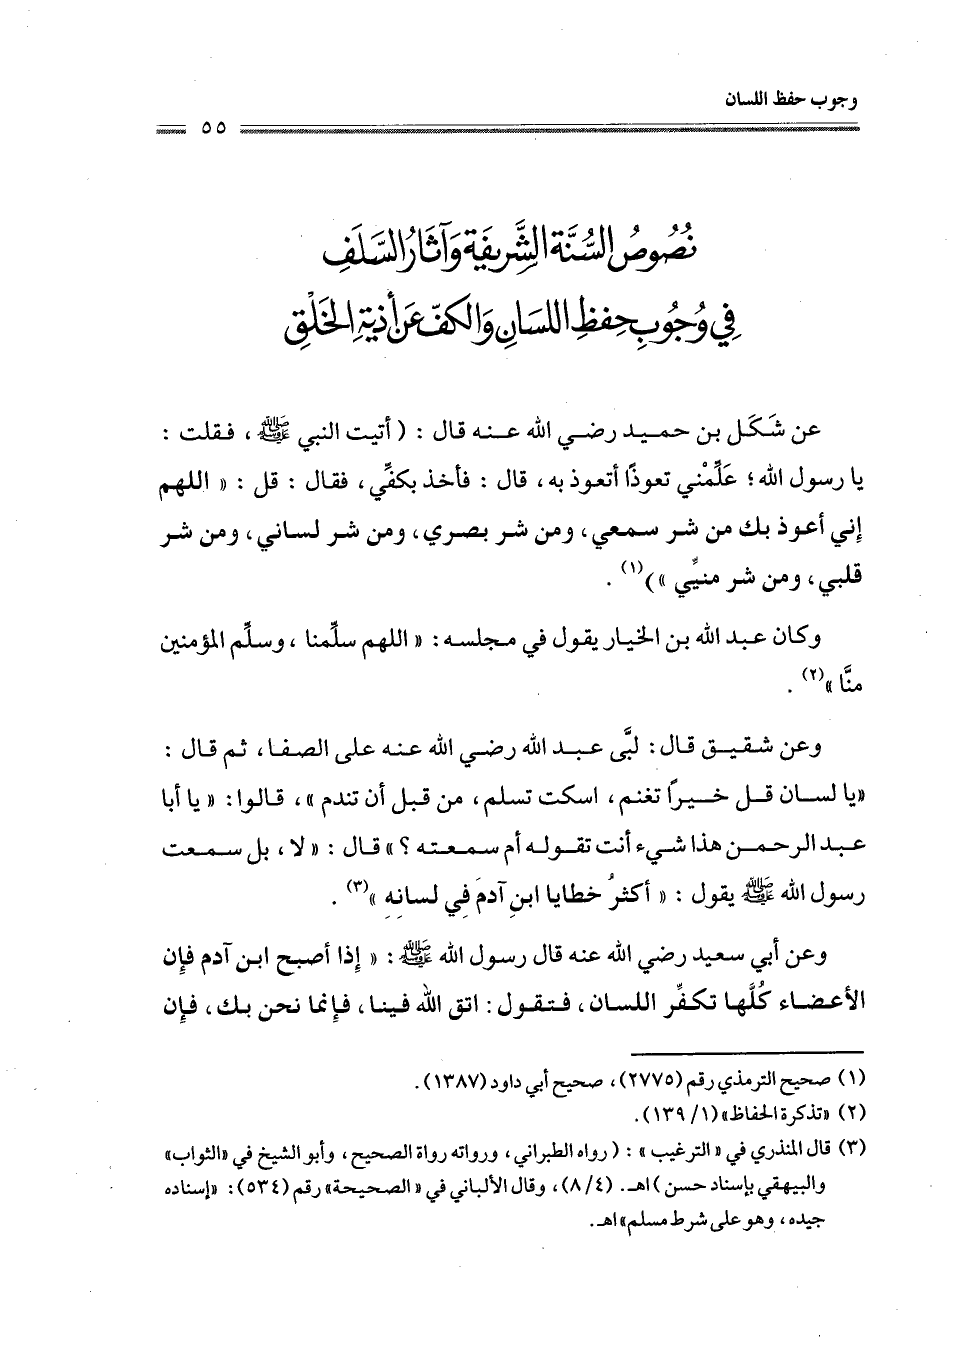 وجوب حفظ اللسان
٥٥
نُصُوصُ السُّنَّة الشَّرِيفَة وَآثَارُ السَّلَفِ
فِي وُجُوبِ حِفظِ اللسَانِ وَالكفّ عَن أذيةِ الخَلْقِ
عن شَكَل بن حميد رضي الله عنه قال : ( أتيت النبي ﷺ ، فقلت :
يا رسول الله ؛ عَلِّمْني تعوذًا أتعوذ به ، قال : فأخذ بكفِّي ، فقال : قل : « اللهم
إني أعوذ بك من شر سمعي ، ومن شر بصري ، ومن شر لساني ، ومن شر
قلبي ، ومن شر منيِّي » )(١) .
وكان عبد الله بن الخيار يقول في مجلسه : « اللهم سلِّمنا ، وسلِّم المؤمنين
منَّا »(٢) .
وعن شقيق قال : لبَّى عبد الله رضي الله عنه على الصفا ، ثم قال :
«يا لسان قل خيراً تغنم ، اسكت تسلم ، من قبل أن تندم » ، قالوا : « يا أبا
عبد الرحمن هذا شيء أنت تقوله أم سمعته ؟ » قال : « لا ، بل سمعت
رسول الله ﷺ يقول : « أكثرُ خطايا ابنِ آدمَ فِي لسانِهِ »(٣) .
وعن أبي سعيد رضي الله عنه قال رسول الله ﷺ : « إذا أصبح ابن آدم فإن
الأعضاء كُلَّها تكفِّر اللسان ، فتقول : اتق اللهَ فينا ، فإنما نحن بك ، فإن
(١) صحيح الترمذي رقم (٢٧٧٥) ، صحيح أبي داود (١٣٨٧) .
(٢) «تذكرة الحفاظ» (١/ ١٣٩) .
(٣) قال المنذري في « الترغيب » : ( رواه الطبراني ، ورواته رواة الصحيح ، وأبو الشيخ في «الثواب»
والبيهقي بإسناد حسن ) اهـ. (٤/ ٨) ، وقال الألباني في « الصحيحة» رقم (٥٣٤) : «إسناده
جيده ، وهو على شرط مسلم» اهـ .